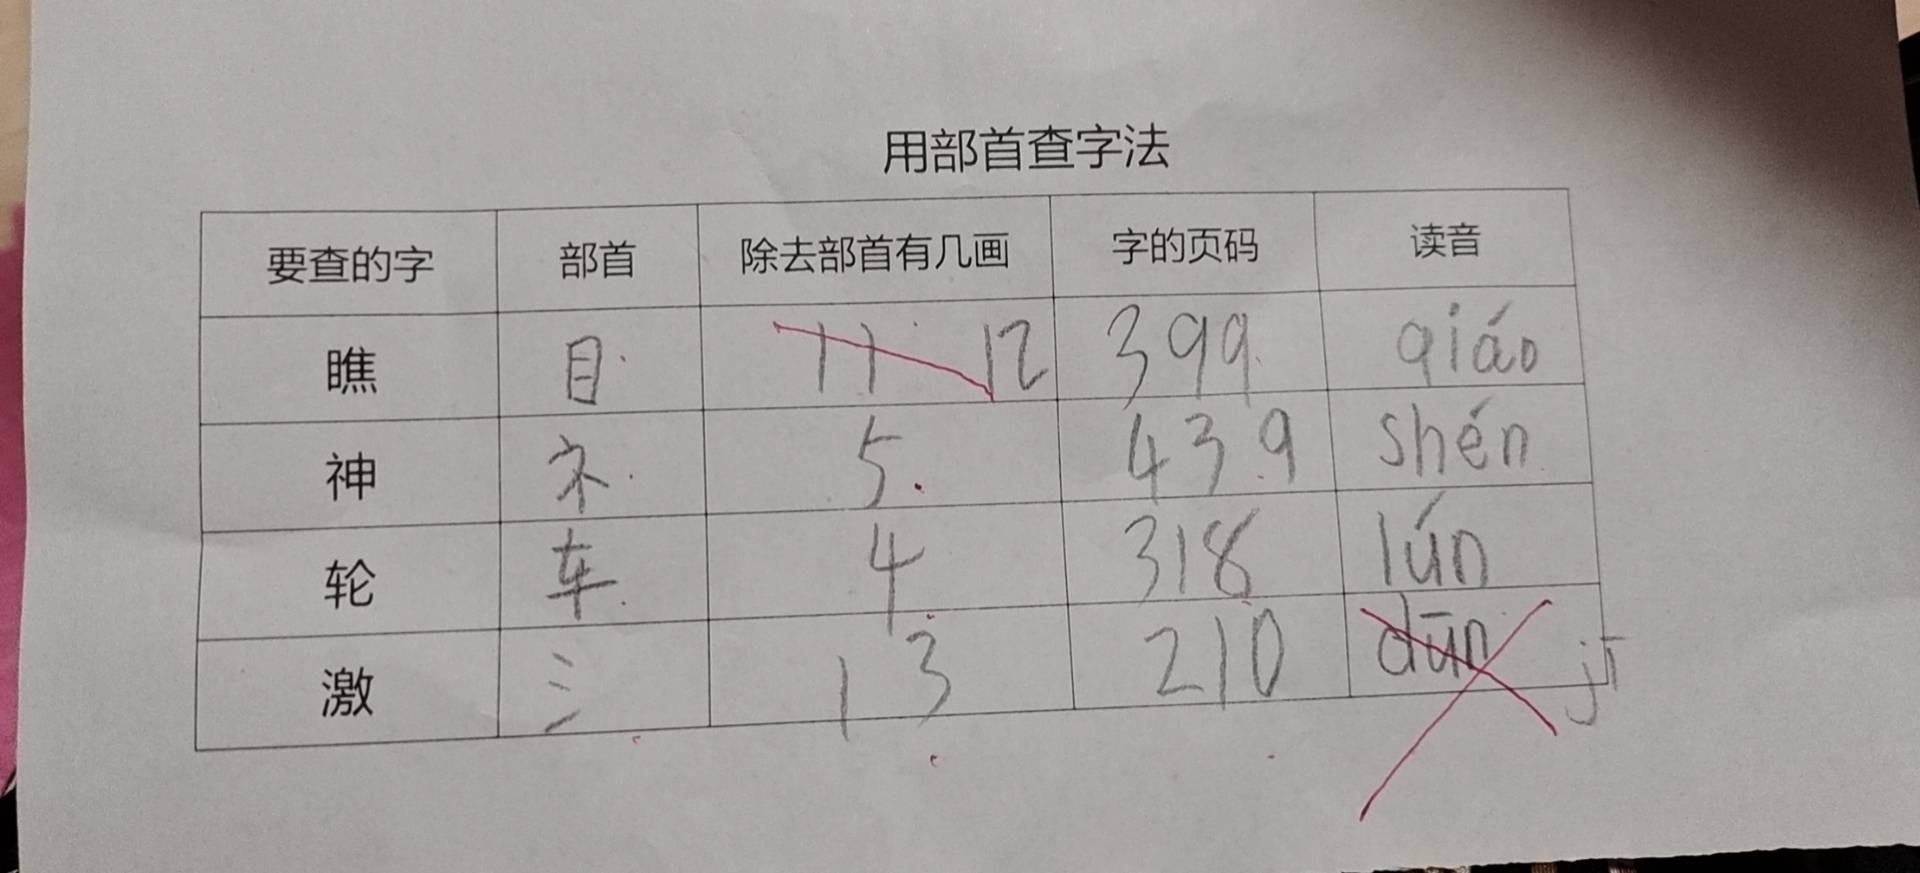 用部首查字法
要查的字 部首 除去部首有几画 字的页码 读音
瞧 目 11 12 399 qiáo
神 礻 5 439 shén
轮 车 4 318 lún
激 氵 13 210 dūn jī